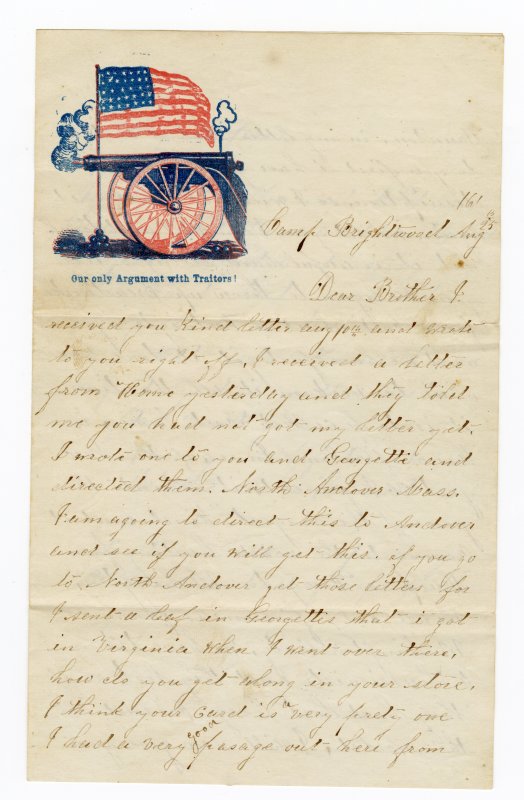 Our only Argument with Traitors!
/61
Camp Brightwood Aug 25
Dear Brother I
received you kind letter aug 10th and wrote
to you right off, I received a letter
from Home yesterday and they told
me you had not got my letter yet.
I wrote one to you and Georgette and
directed them. North Andover Mass.
I am agoing to direct this to Andover
and see if you will get this. if you go
to North Andover get those letters for
I sent a leaf in Georgettis that i got
in Virginia when I went over there,
how do you get along in your store,
I think your card is a very prety one
I had a very good pasage out, here from